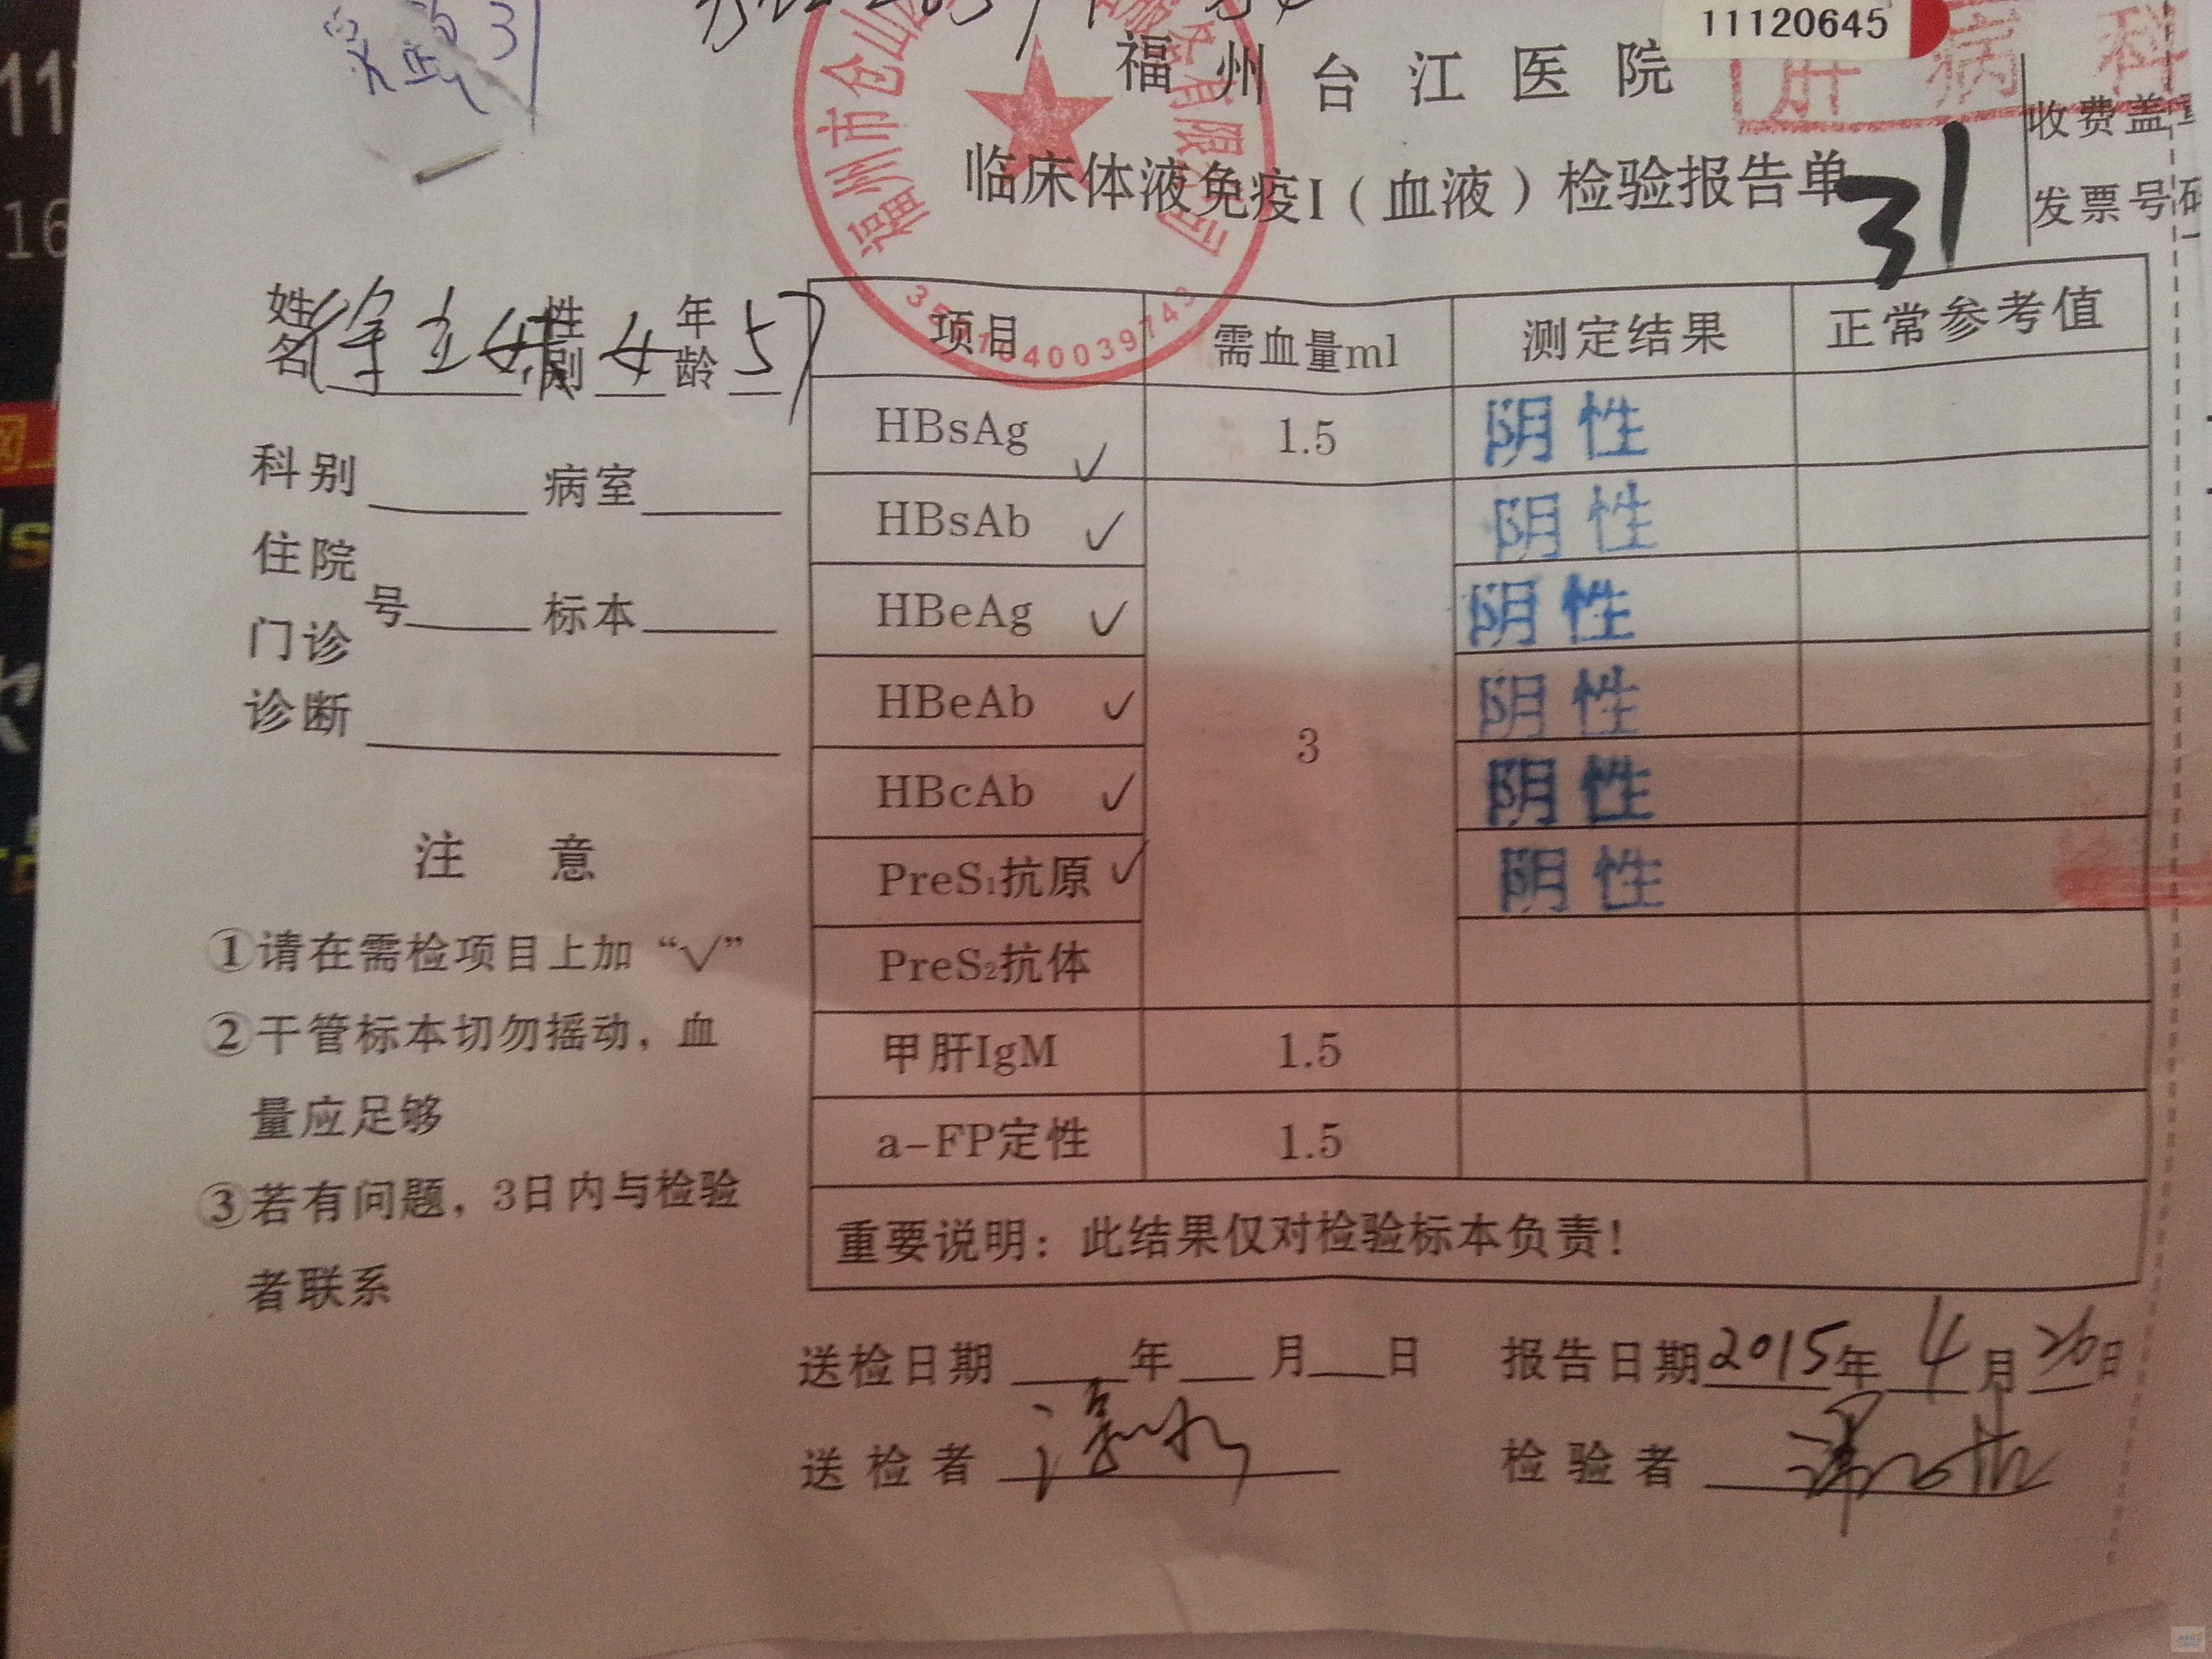 11120645
福州台江医院
肝病科
临床体液免疫I（血液）检验报告单
31
收费盖
发票号码
福州市仓山 有限公司
040039743
姓名 徐 性别 女 年龄 57
科别 病室
住院
门诊
号 标本
诊断
注 意
①请在需检项目上加“√”
②干管标本切勿摇动，血
量应足够
③若有问题，3日内与检验
者联系
项目 需血量ml 测定结果 正常参考值
HBsAg ✓ 1.5 阴性
HBsAb ✓ 阴性
HBeAg ✓ 阴性
HBeAb ✓ 3 阴性
HBcAb ✓ 阴性
PreS₁抗原 ✓ 阴性
PreS₂抗体
甲肝IgM 1.5
a-FP定性 1.5
重要说明：此结果仅对检验标本负责！
送检日期 年 月 日 报告日期 2015年 4月 26日
送检者 检验者